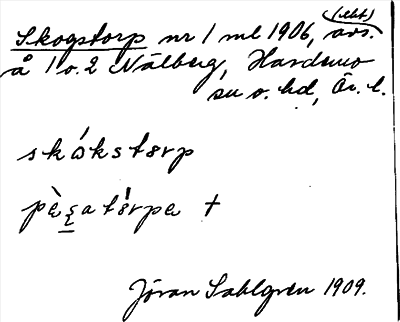 (ebf)
Skogstorp nr 1 ml 1906, avs.
å 1 o. 2 Nälberg, Hardemo
sn o. hd, Ör. l.
skɷ́kstɵrp
pè̱ꞩatɵ́rpa +
Jöran Sahlgren 1909.